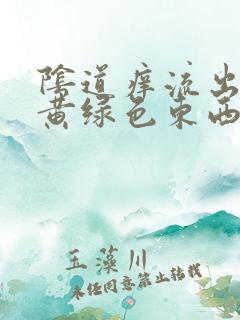 陰道痒流出
黄绿色东西
玉藻川
未经同意禁止转载